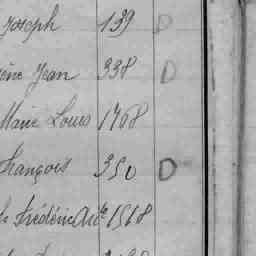 Joseph 139 D
ène Jean 338 D
Marie Louis 1768
François 350 D
Frédéric Aute 1518